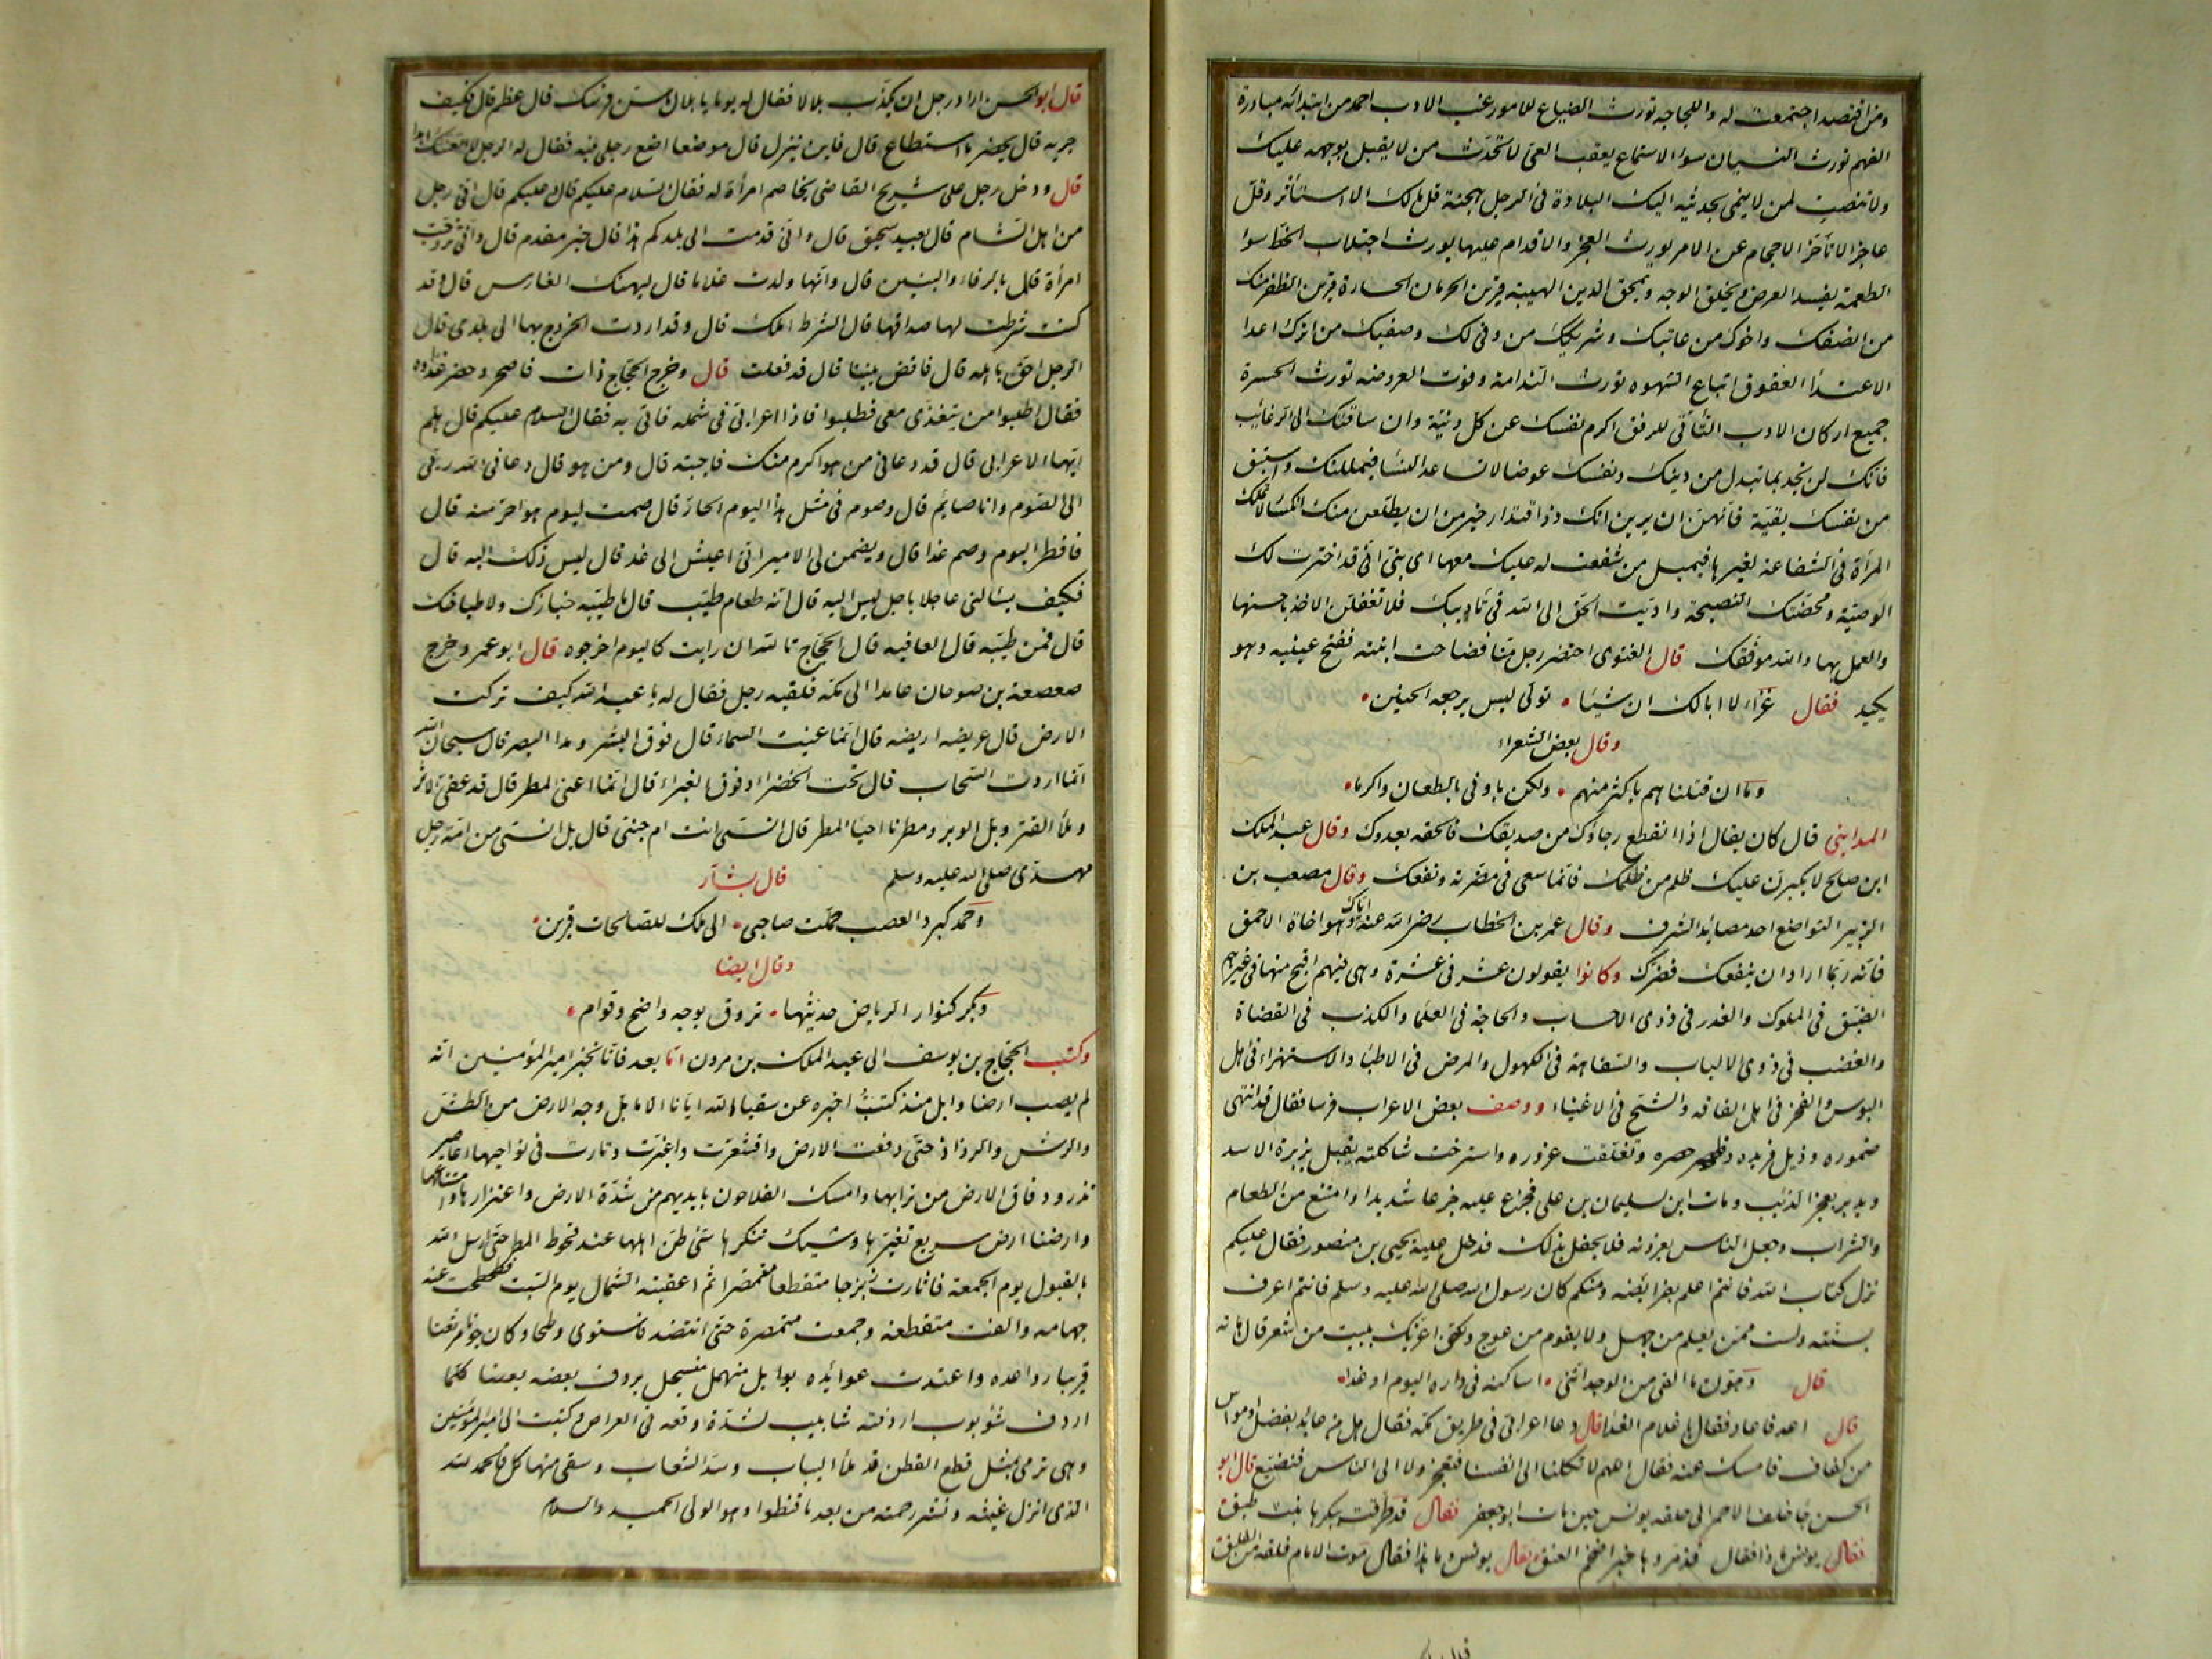 ومن اقتصد اجتمعت له واللجاجه تورث الضياع للامور غب الادب احمد من ابتدائه مبادرة
الفهم تورث النسيان سوء الاستماع يعقب العى لا تحدث من لا يقبل بوجهه عليك
ولا تنصت لمن لا ينمى بحديثه اليك البلادة فى الرجل هجنة قل مالك الا استأثر وقل
عاجز الا تأخر الاحجام عن الامر يورث العجز والاقدام عليها يورث اجتلاب الحظ سوء
الطعمة يفسد العرض ويخلق الوجه ويمحق الدين الهيبة قرين الحرمان الجسارة قرين الظفر منك
من انصفك واخوك من عاتبك وشريكك من وفى لك وصفيك من اثرك اعدا
الاعداء العقوق اتباع الشهوه تورث الندامة وفوت الفرصه تورث الحسرة
جميع اركان الادب التأتى للرفق اكرم نفسك عن كل دنية وان ساقتك الى الرغائب
فانك لن تجد بما تبذل من دينك ونفسك عوضا لا تساعد النساء فيمللنك واستبق
من نفسك بقية فانهن ان يرين انك ذو اقتدار خير من ان يطلعن منك على انكسار لا تملك
المرأة فى الشفاعة لغيرها فيميل من شفعت له عليك معها اى بنى انى قد اخترت لك
الوصية ومحضتك النصيحة واديت الحق الى الله فى تاديبك فلا تغفلن الاخذ باحسنها
والعمل بها والله موفقك قال الغنوى احتضر رجل منا فصاحت ابنته ففتح عينيه وهو
يكيد فقال عزاء لا ابالك ان شيئا • تولى ليس يرجعه الحنين •
وقال بعض الشعراء
وما ان قتلناهم باكثر منهم • ولكن باوفى بالطعان واكرما •
المداينى قال كان يقال اذا انقطع رجاؤك من صديقك فالحقه بعدوك وقال عبد الملك
ابن صالح لا يكبرن عليك ظلم من ظلمك فانما سعى فى مضرته ونفعك وقال مصعب بن
الزبير التواضع احد مصائد الشرف وقال عمر بن الخطاب رضى الله عنه اياك ومواخاة الاحمق
فانه ربما اراد ان ينفعك فضرك وكانوا يقولون عشر فى عشرة وهى فيهم اقبح منها فى غيرهم
الضيق فى الملوك والغدر فى ذوى الاحساب والحاجة فى العلماء والكذب فى القضاة
والغضب فى ذوى الالباب والسفاهة فى الكهول والمرض فى الاطباء والاستهزاء فى اهل
البوس والفخر فى اهل الفاقه والشح فى الاغنياء ووصف بعض الاعراب فرسا فقال قد انتهى
ضموره وذبل فريره وظهر حصيره وتفلقت غروره واسترخت شاكلته يقبل بزبرة الاسد
ويدبر بعجز الذئب ومات ابن لسليمان بن على فجزع عليه جزعا شديدا وامتنع من الطعام
والشراب وجعل الناس يعزونه فلا يحفل بذلك فدخل عليه يحيى بن منصور فقال عليكم
نزل كتاب الله فانتم اعلم بفرائضه ومنكم كان رسول الله صلى الله عليه وسلم فانتم اعرف
بسنته ولست ممن يعلم من جهل ولا يقوم من عوج ولكنى اعزيك ببيت من شعر قال هاته
قال وهون ما القى من الوجد اننى • اساكنه فى داره اليوم او غدا •
قال اعد فاعاد فقال يا غلام الغداء قال دعا اعرابى فى طريق مكه فقال هل من عائد بفضل او مواس
من كفاف فامسك عنه فقال اللهم لا تكلنا الى انفسنا فنعجز ولا الى الناس فنضيع قال ابو
الحسن جاء خلف الاحمر الى حلقه يونس حين مات ابو جعفر فقال قد طرقت ببكرها بنت طبق
فقال يونس ماذا فقال فذمروها خبرا ضخم العنق فقال يونس ماذا فقال موت الامام فلقة من الفلق
قال ابو الحسن اراد رجل ان يكذب بلالا فقال له يوما يا بلال ما سن فرسك قال عظم قال فكيف
جريه قال يحضر ما استطاع قال فاين ينزل قال موضعا اضع رجلى فيه فقال له الرجل لا اتعنتك ابدا
قال ودخل رجل على شريح القاضى يخاصم امرأة له فقال السلام عليكم قال وعليكم قال انى رجل
من اهل الشام قال بعيد سحيق قال وانى قدمت الى بلدكم هذا قال خير مقدم قال وانى تزوجت
امرأة قال بالرفاء والبنين قال وانها ولدت غلاما قال ليهنك الفارس قال وقد
كنت شرطت لها صداقها قال الشرط املك قال وقد اردت الخروج بها الى بلدى قال
الرجل احق باهله قال فاقض بيننا قال قد فعلت قال وخرج الحجاج ذات فاصحر وحضر غداوه
فقال اطلبوا من يتغدى معى فطلبوا فاذا اعرابى فى شمله فاتى به فقال السلام عليكم قال هلم
ايها الاعرابى قال قد دعانى من هو اكرم منك فاجبته قال ومن هو قال دعانى الله ربى
الى الصوم وانا صايم قال وصوم فى مثل هذا اليوم الحار قال صمت ليوم هو احر منه قال
فافطر اليوم وصم غدا قال ويضمن لى الامير انى اعيش الى غد قال ليس ذلك اليه قال
فكيف يسالنى عاجلا باجل ليس اليه قال انه طعام طيب قال ما طيبه خبازك ولا طباخك
قال فمن طيبه قال العافيه قال الحجاج تالله ان رايت كاليوم اخرجوه قال ابو عمر وخرج
صعصعة بن صوحان عامدا الى مكه فلقيه رجل فقال له يا عبد الله كيف تركت
الارض قال عريضه اريضه قال انما عنيت السماء قال فوق البشر ومدا البصر قال سبحان الله
انما اردت السحاب قال تحت الخضراء وفوق الغبراء قال انما اعنى المطر قال قد عفى الاثر
وملأ القتر وبل الوبر ومطرنا احيا المطر قال انسى انت ام جنى قال بل انسى من امة رجل
مهدى صلى الله عليه وسلم قال بشار
وحمد كبرد العصب حملت صاحبى • الى ملك للصالحات قرين •
وقال ايضا
وبكر كنوار الرياض حديثها • تروق بوجه واضح وقوام •
وكتب الحجاج بن يوسف الى عبد الملك بن مرون اما بعد فانا نخبر امير المؤمنين انه
لم يصب ارضنا وابل منذ كتبت اخبره عن سقيا الله ايانا الا ما بل وجه الارض من الطش
والرش والرذاذ حتى دقعت الارض واقشعرت واغبرت وثارت فى نواحيها اعاصير
تذرو دقاق الارض من ترابها وامسك الفلاحون بايديهم من شدة الارض واعتزازها وامتناعها
وارضنا ارض سريع تغيرها وشيك تنكرها سئ ظن اهلها عند قحوط المطر حتى ارسل الله
بالقبول يوم الجمعة فاثارت زبرجا متقطعا متمصرا ثم اعقبته الشمال يوم السبت فطحطحت عنه
جهامه والفت متقطعه وجمعت متمصرة حتى انتضد فاستوى وطما وكان جونا مرثعنا
قريبا رواعده واعتدت عوائده بوابل منهمل منسجل يردف بعضه بعضا كلما
اردف شؤبوب اردفته شابيب لشدة اوقعه فى العراص وكتبت الى امير المؤمنين
وهى ترمى بمثل قطع القطن قد ملأ اليباب وسد الشعاب وسقى منها كل فالحمد لله
الذى انزل غيثه ونشر رحمته من بعد ما قنطوا وهو الولى الحميد والسلام